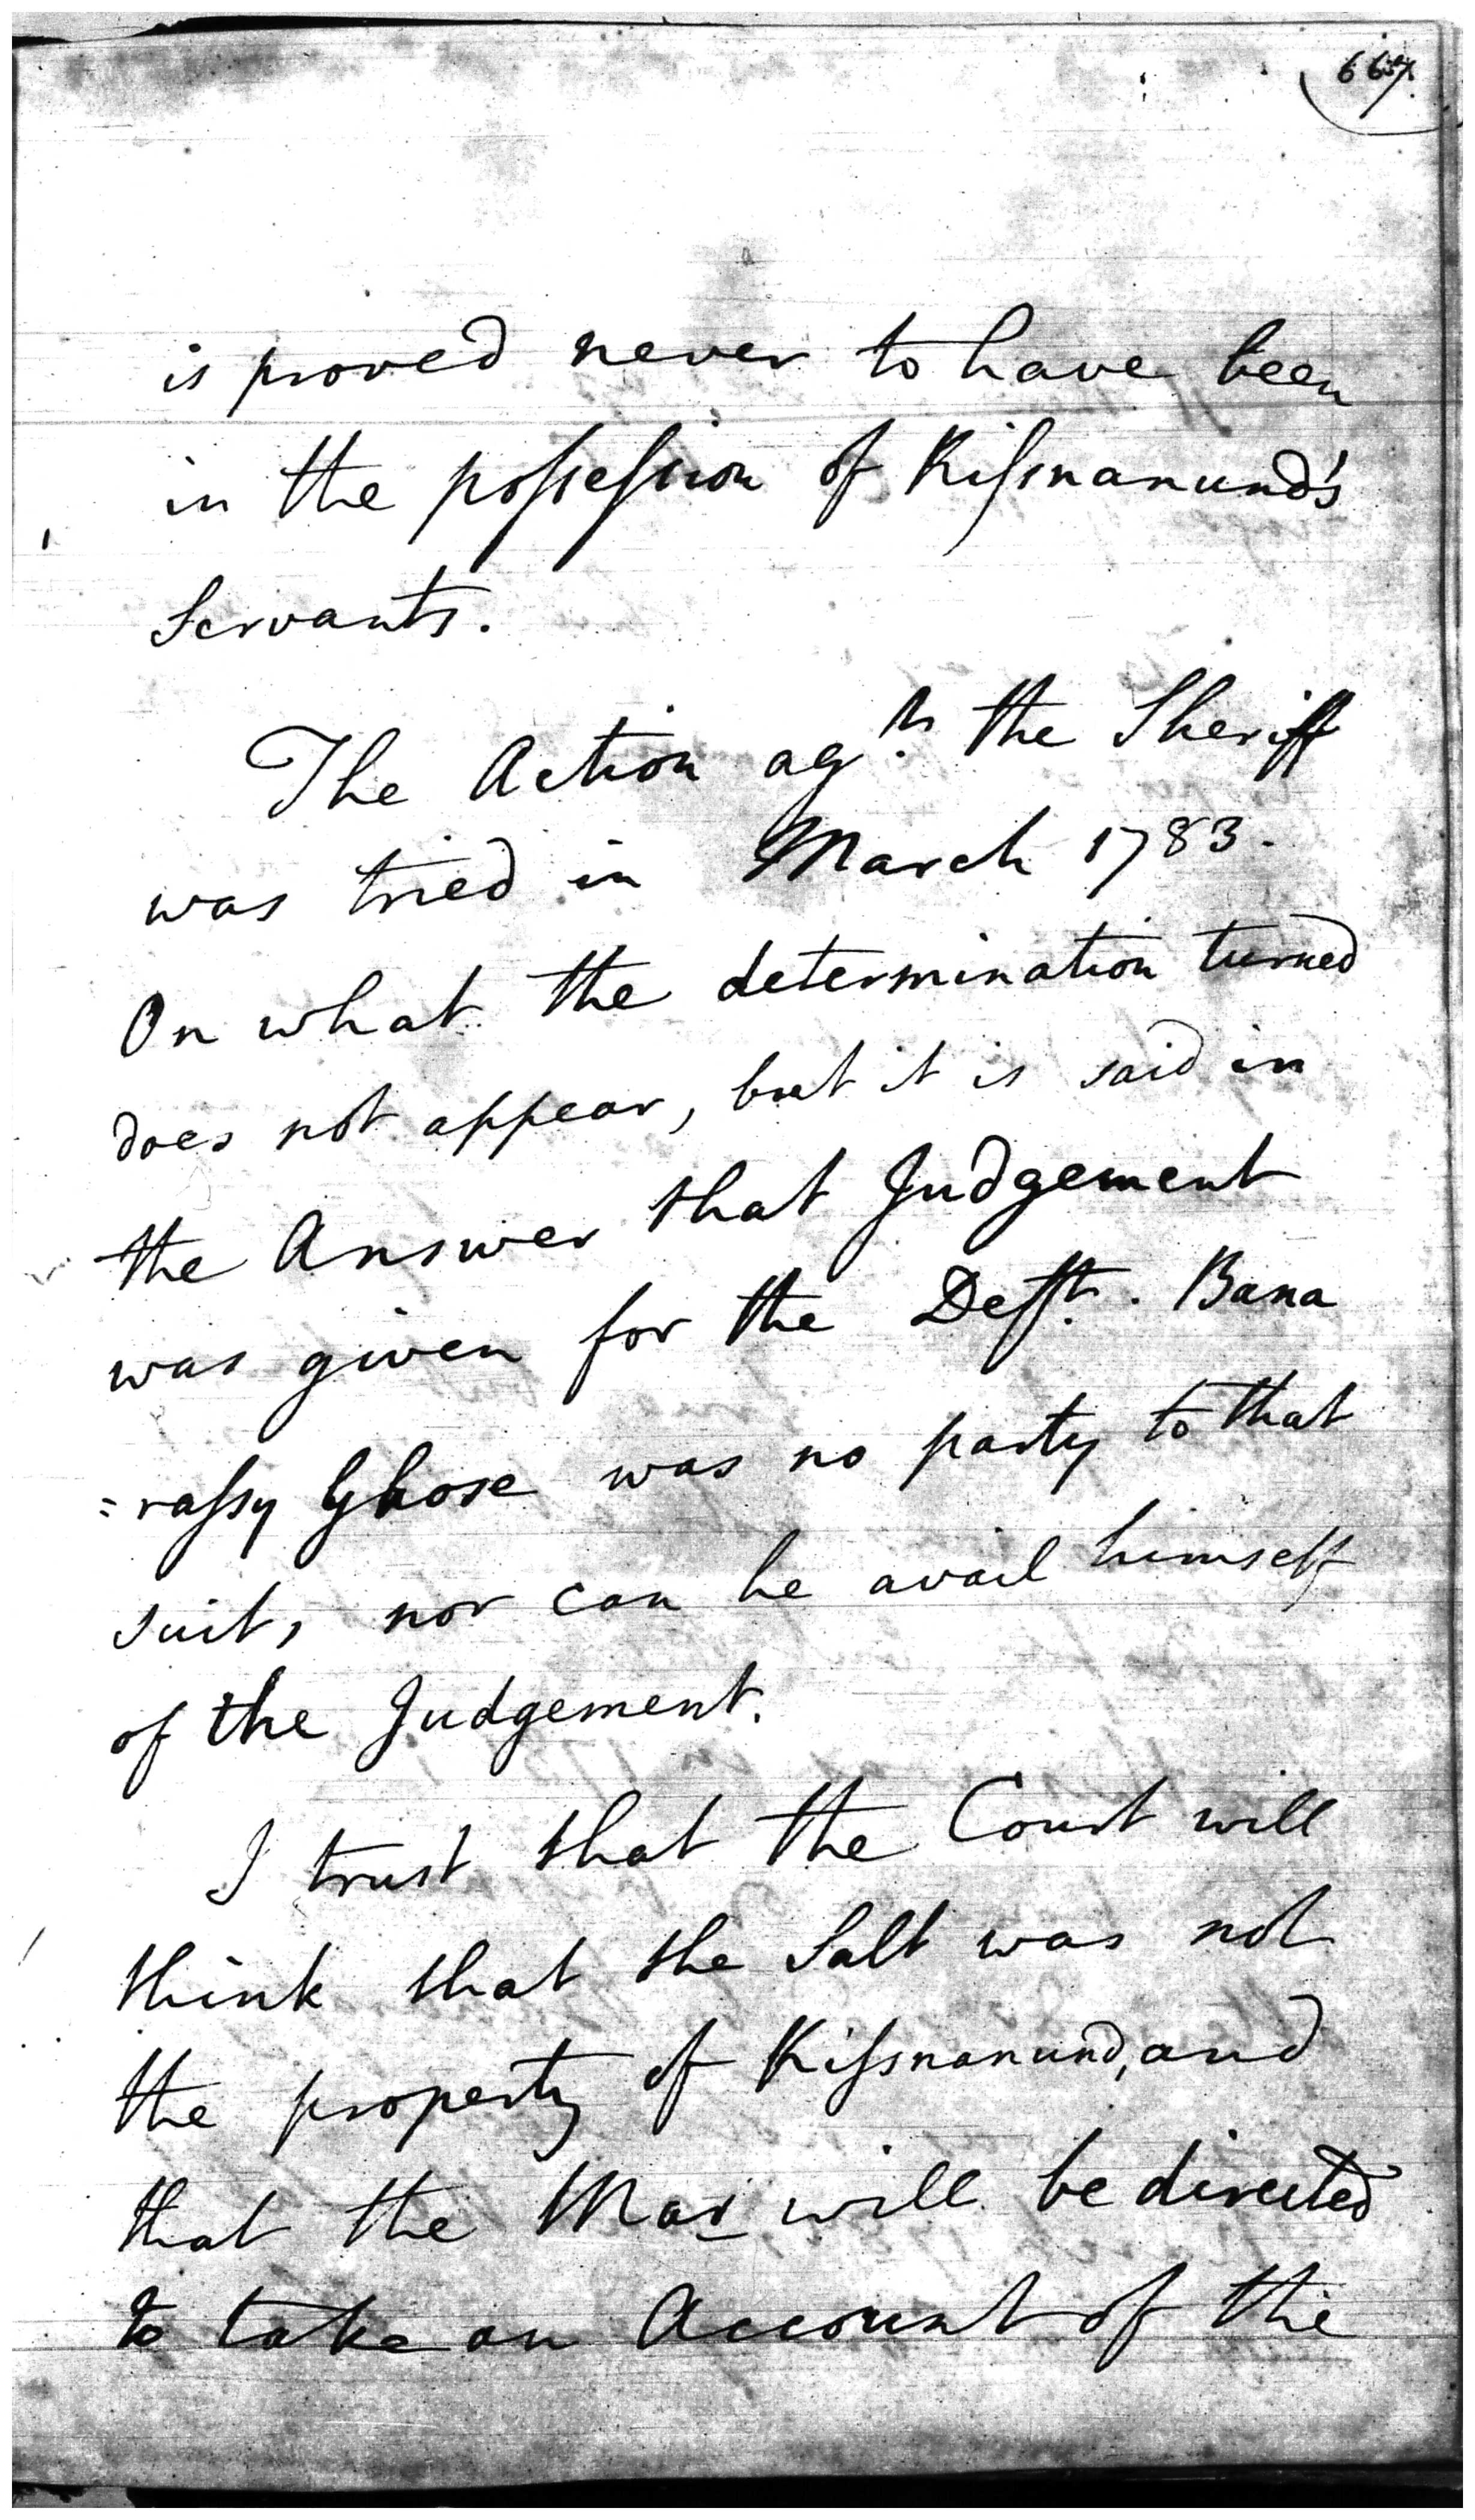 is proved never to have been
in the possession of Kissnanund's
Servants.
The Action agst. the Sheriff
was tried in March 1783.
On what the determination turned
does not appear, but it is said in
the Answer that Judgement
was given for the Deft. Bana
=rassy Ghose was no party to that
suit, nor can he avail himself
of the Judgement.
I trust that the Court will
think that the Salt was not
the property of Kissnanund, and
that the Mar will be directed
to take an Account of the